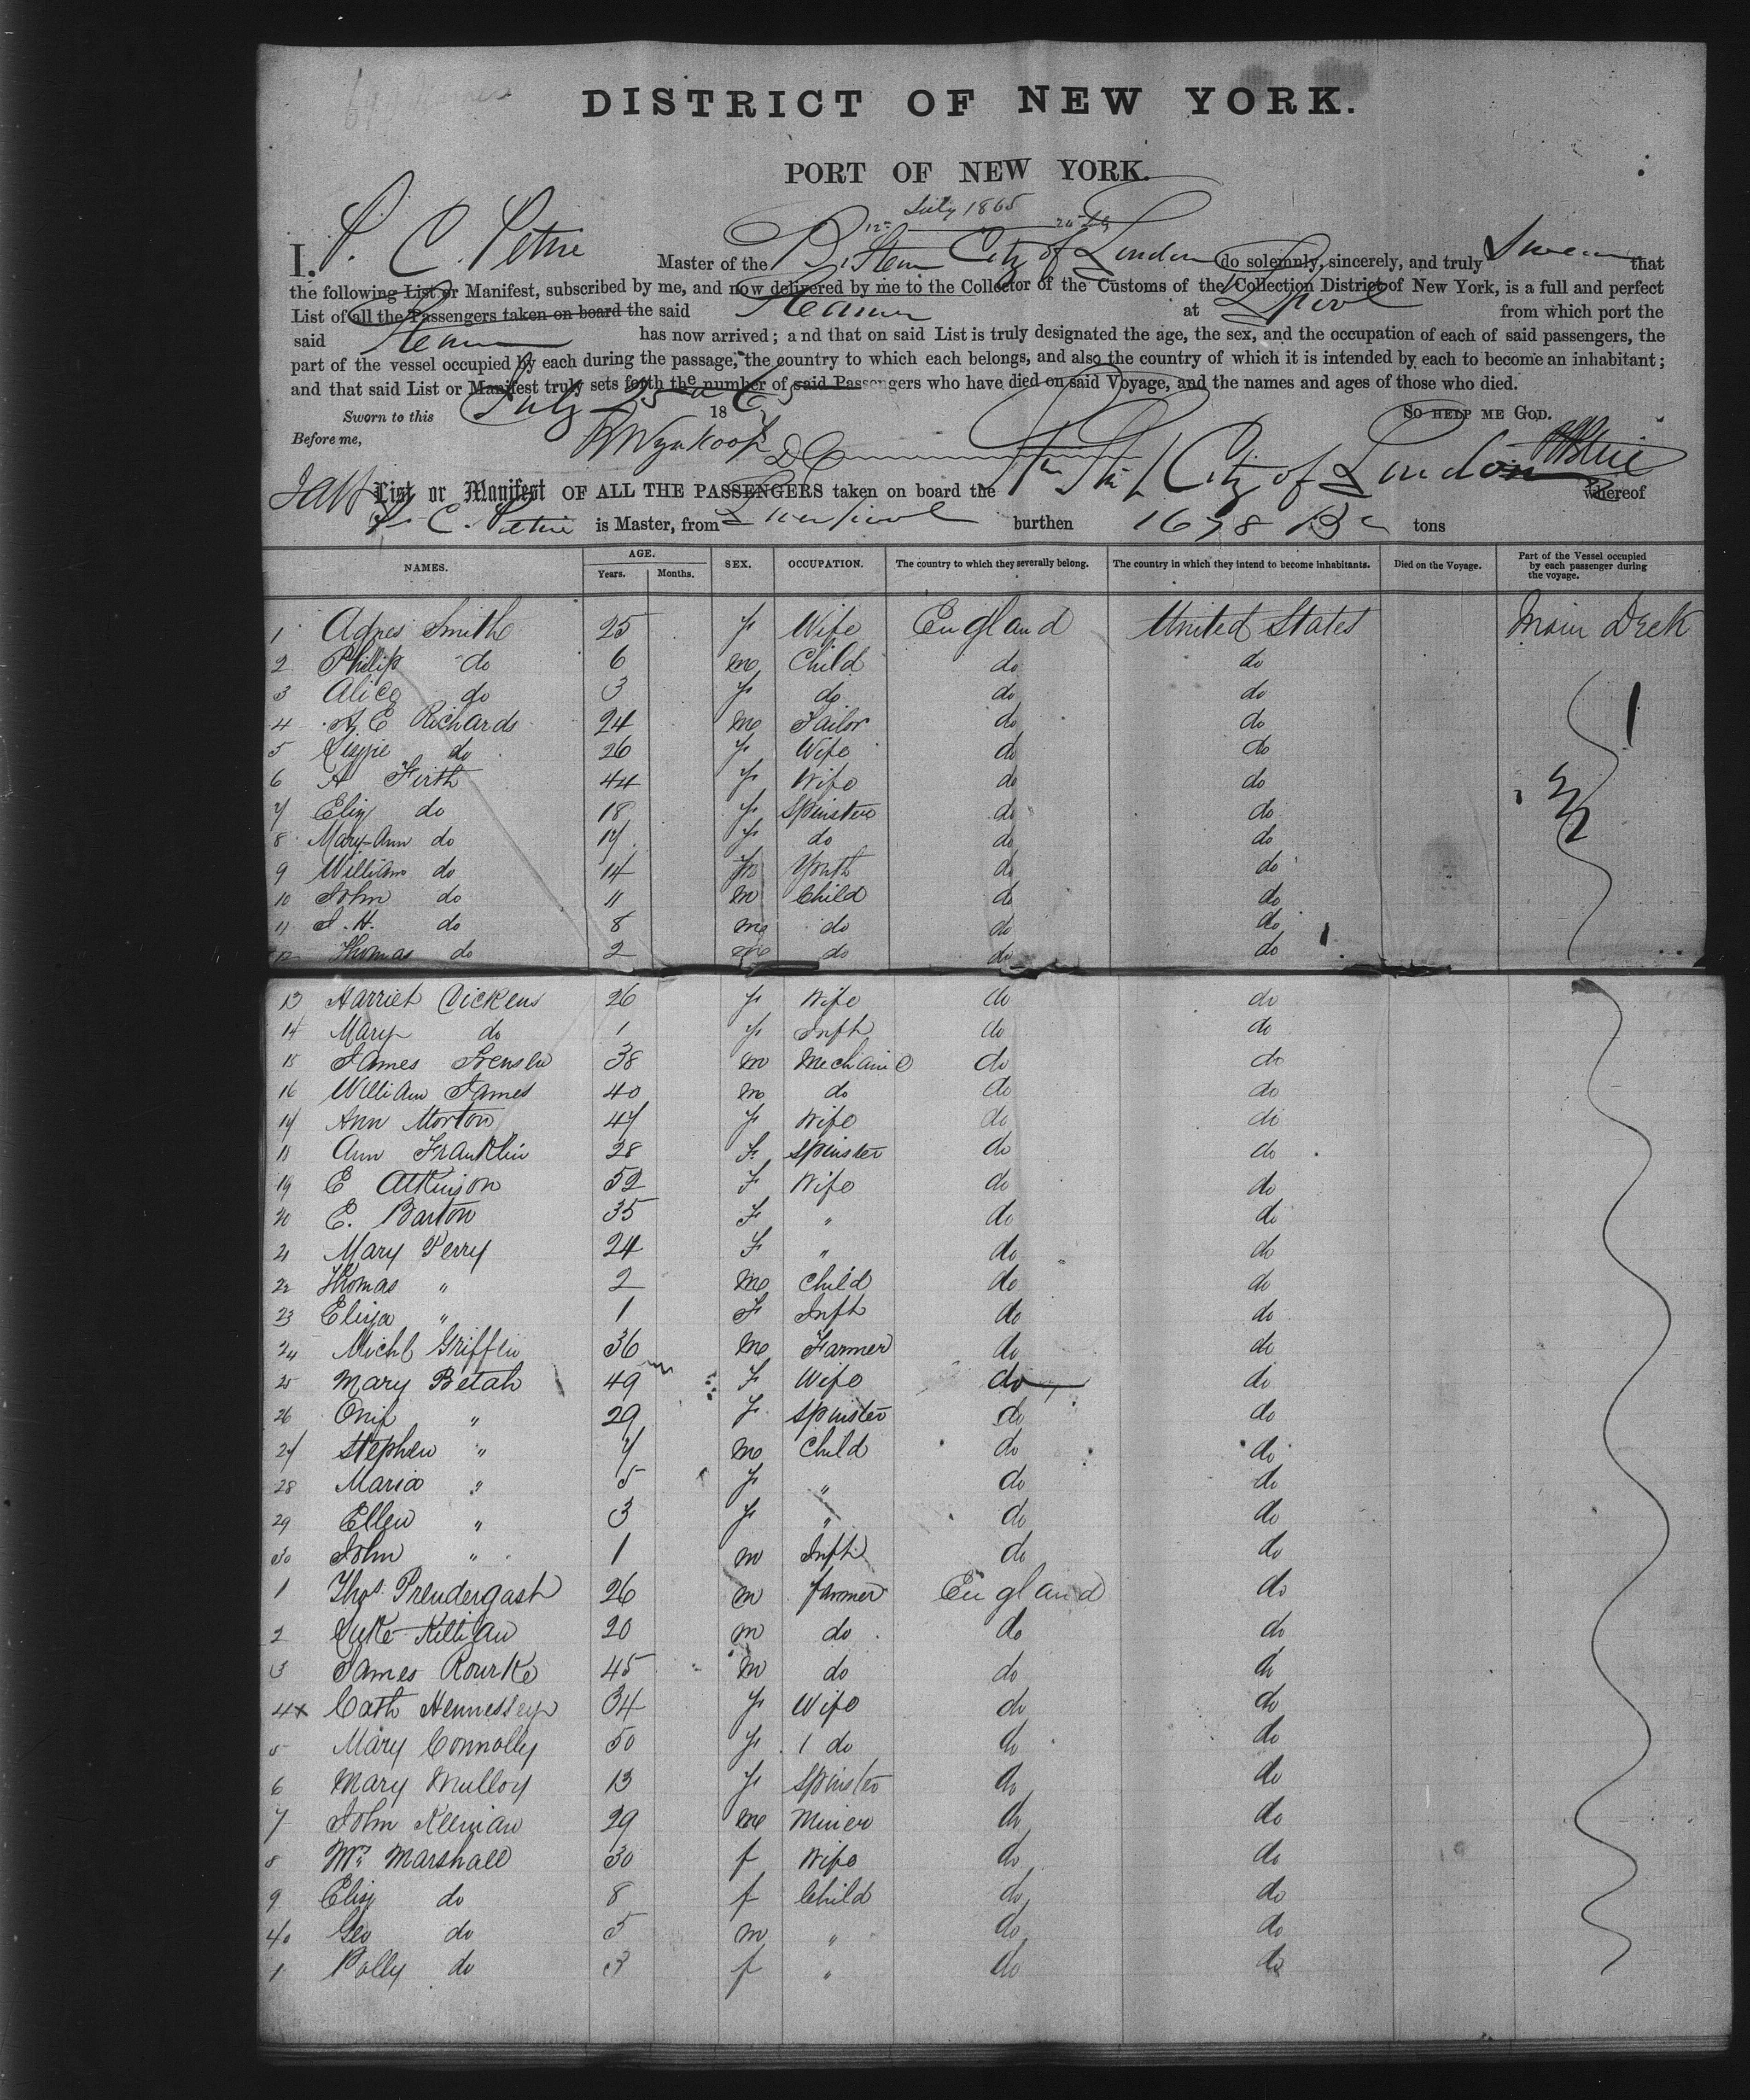 DISTRICT OF NEW YORK.
PORT OF NEW YORK.
July 1865
I, P. C. Petrie Master of the Br. Steam City of London do solemnly, sincerely, and truly Swear that
the following List or Manifest, subscribed by me, and now delivered by me to the Collector of the Customs of the Collection District of New York, is a full and perfect
List of all the Passengers taken on board the said Steamer at Lpool from which port the
said Steamer has now arrived; and that on said List is truly designated the age, the sex, and the occupation of each of said passengers, the
part of the vessel occupied by each during the passage, the country to which each belongs, and also the country of which it is intended by each to become an inhabitant;
and that said List or Manifest truly sets forth the number of said Passengers who have died on said Voyage, and the names and ages of those who died.
Sworn to this July 25 1865 SO HELP ME GOD.
Before me, Wynkoop DC Petrie
List or Manifest OF ALL THE PASSENGERS taken on board the City of London whereof
P. C. Petrie is Master, from Liverpool burthen 1678 tons
NAMES. AGE. Years. Months. SEX. OCCUPATION. The country to which they severally belong. The country in which they intend to become inhabitants. Died on the Voyage. Part of the Vessel occupied by each passenger during the voyage.
1 Agnes Smith 25 F Wife England United States Main Deck
2 Philip do 6 m Child do do
3 Alice do 3 F do do do
4 A. E Richards 24 m Tailor do do
5 Lizzie do 26 F Wife do do
6 A Firth 44 F Wife do do
7 Eliz do 18 F Spinster do do
8 Mary-Ann do 17 F do do do
9 William do 14 m Youth do do
10 John do 11 m Child do do
11 J. H. do 8 m do do do
12 Thomas do 2 m do do do
13 Harriet Dickens 26 F Wife do do
14 Mary do 1 F Inft do do
15 James 38 m Mechanic do do
16 William James 40 m do do do
17 Ann Morton 47 F Wife do do
18 Ann Franklin 28 F Spinster do do
19 E Atkinson 52 F Wife do do
20 E. Barton 35 F " do do
21 Mary Perry 24 F " do do
22 Thomas " 2 m Child do do
23 Eliza " 1 F Inft do do
24 Michl Griffin 36 m Farmer do do
25 Mary Betah 49 F Wife do do
26 " 29 F Spinster do do
27 Stephen " 7 m Child do do
28 Maria " 5 F " do do
29 Ellen " 3 F " do do
30 John " 1 m Inft do do
1 Thos. Prendergast 26 m farmer England do
2 Luke Killian 20 m do do do
3 James Rourke 45 m do do do
4x Cath Hennessey 34 F Wife do do
5 Mary Connolly 50 F 1 do do do
6 Mary Mulloy 13 F Spinster do do
7 John Keenan 29 m Miner do do
8 Mrs Marshall 30 f Wife do do
9 Eliz do 8 f Child do do
40 Geo do 5 m " do do
1 Polly do 3 f " do do